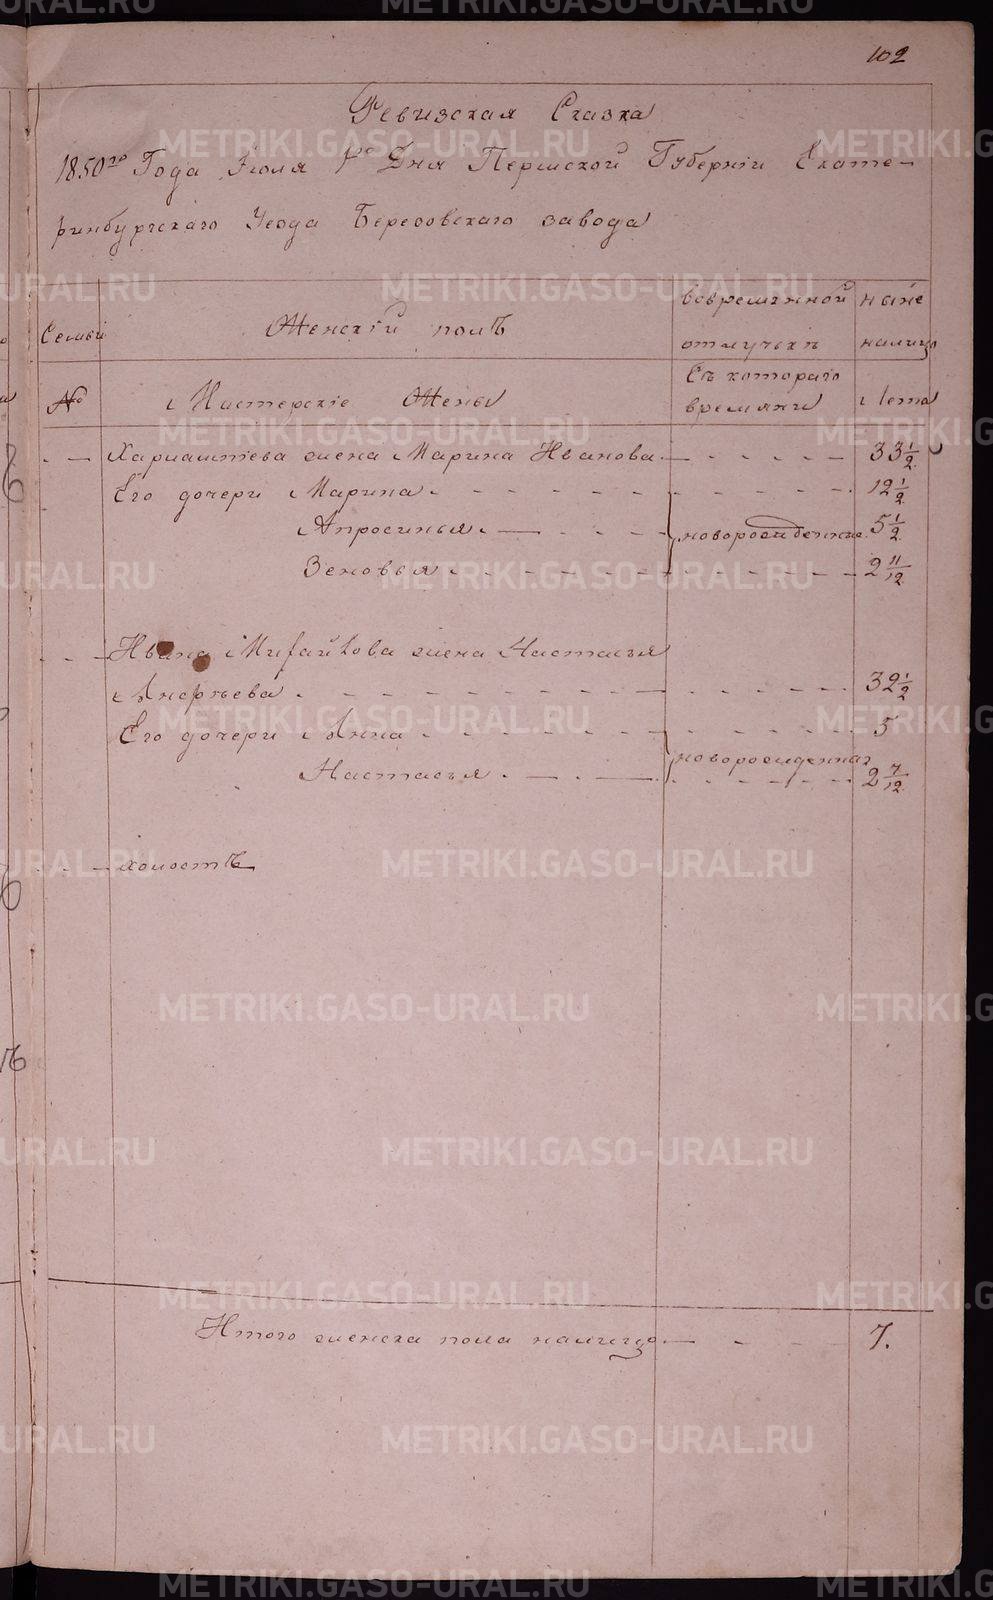 102
Ревизская Сказка
1850го Года Июля 1го Дня Пермской Губернiи Екате-
ринбургскаго Уезда Березовскаго завода
Семьи
Женскiй полъ
вовременной
отлучькъ
ныне
налицо
№
Мастерскiе Жены
Съ котораго
времяни
Лета
жена Марина Иванова 33 1/2
Его дочери Марина 12 1/2
Апросинья новорожденные 5 1/2
Зеновья 2 11/12
Ивана жена Настасья
32 1/2
Его дочери Анна 5
Настасья новорожденная 2 7/12
холостъ
Итого женска пола налицо 7.
METRIKI.GASO-URAL.RU